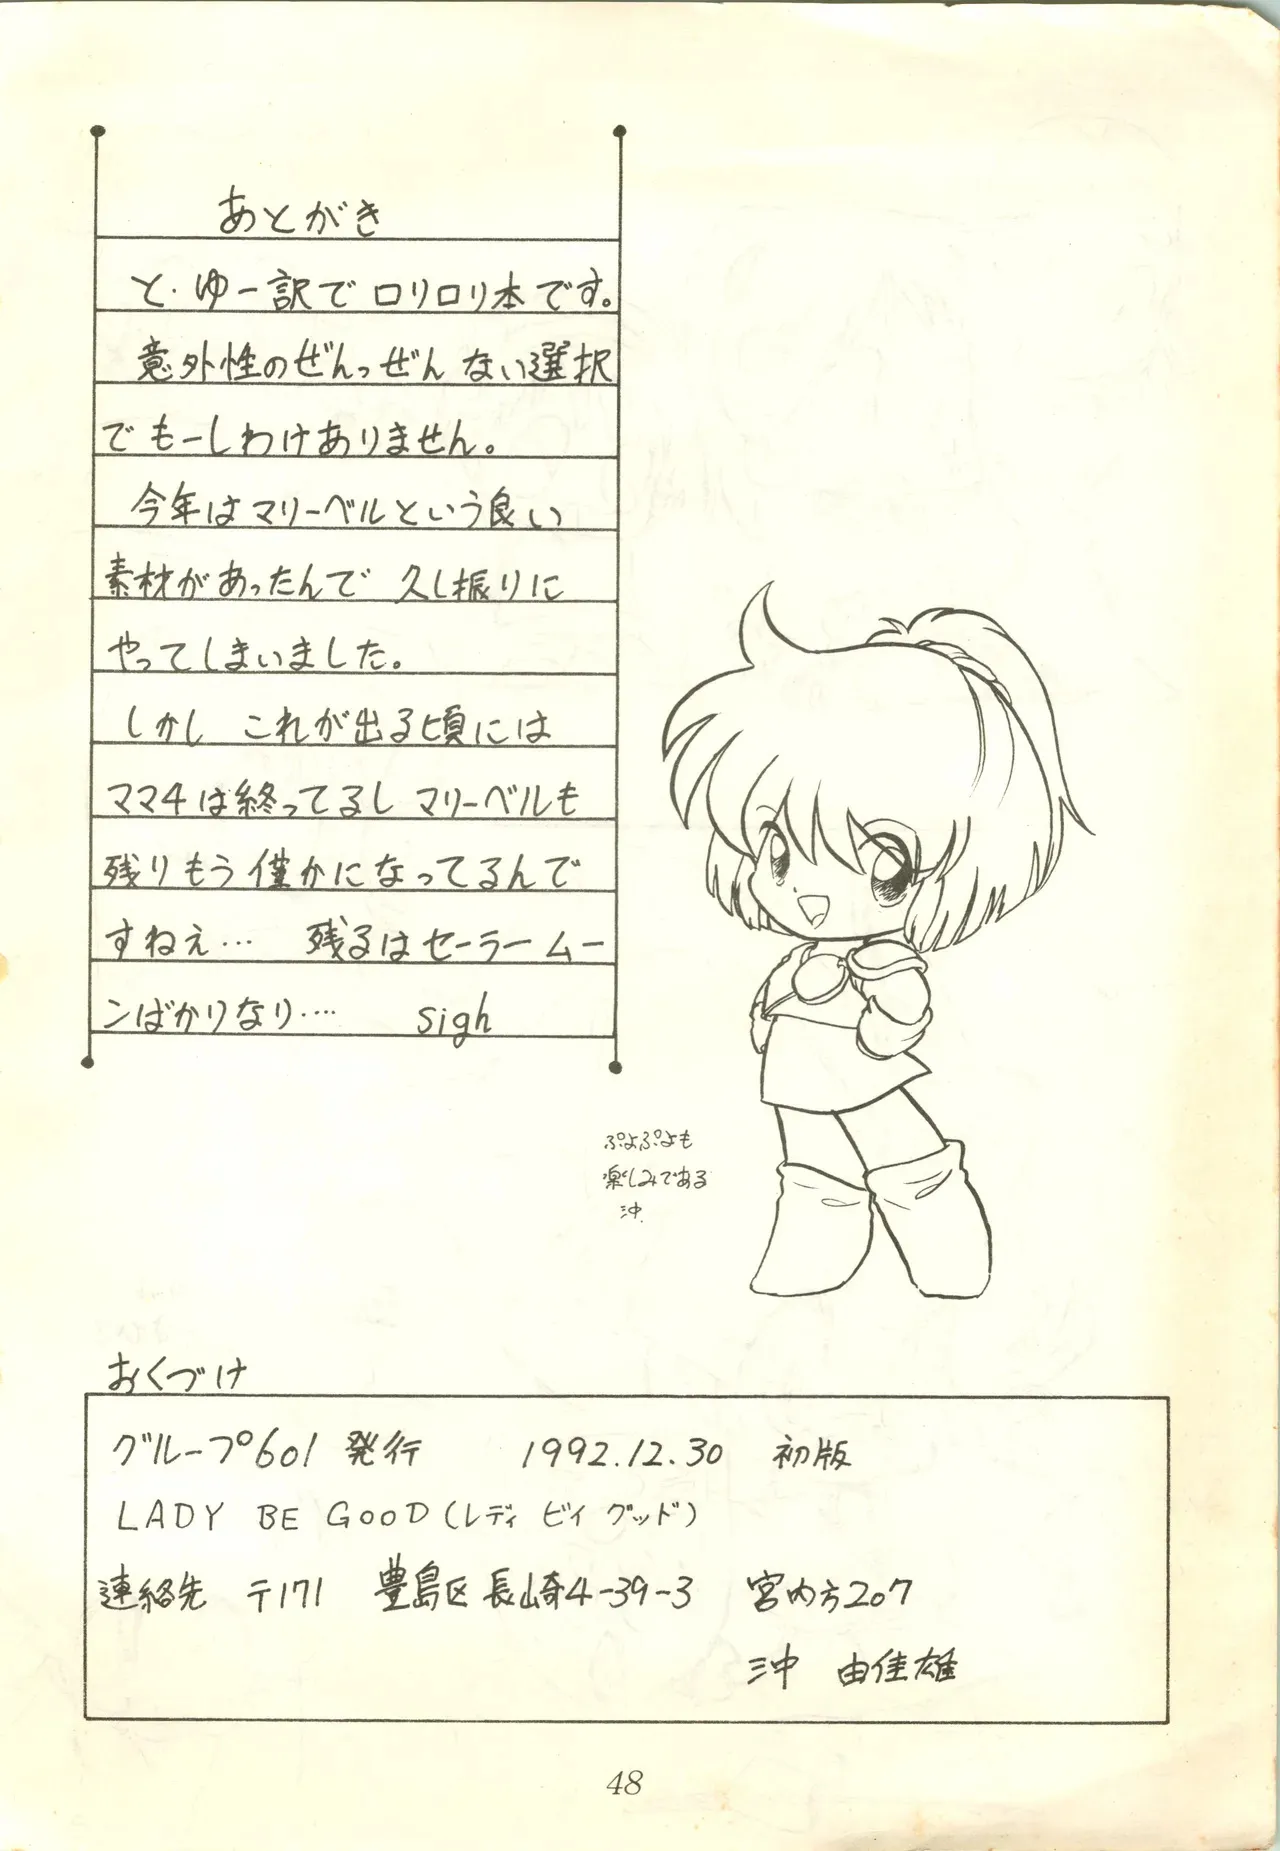 あとがき
と・ゆー訳でロリロリ本です。
意外性のぜんっぜん ない選択
でもーしわけありません。
今年はマリーベルという良い
素材があったんで 久し振りに
やってしまいました。
しかし これが出る頃には
ママ4は終ってるし マリーベルも
残りもう僅かになってるんで
すねぇ… 残るはセーラームー
ンばかりなり…‥ sigh
ぷよぷよも
楽しみである
沖
おくづけ
グループ601 発行 1992.12.30 初版
LADY BE GOOD(レディ ビィ グッド)
連絡先 〒171 豊島区長崎4-39-3 宮内方207
沖 由佳雄
48